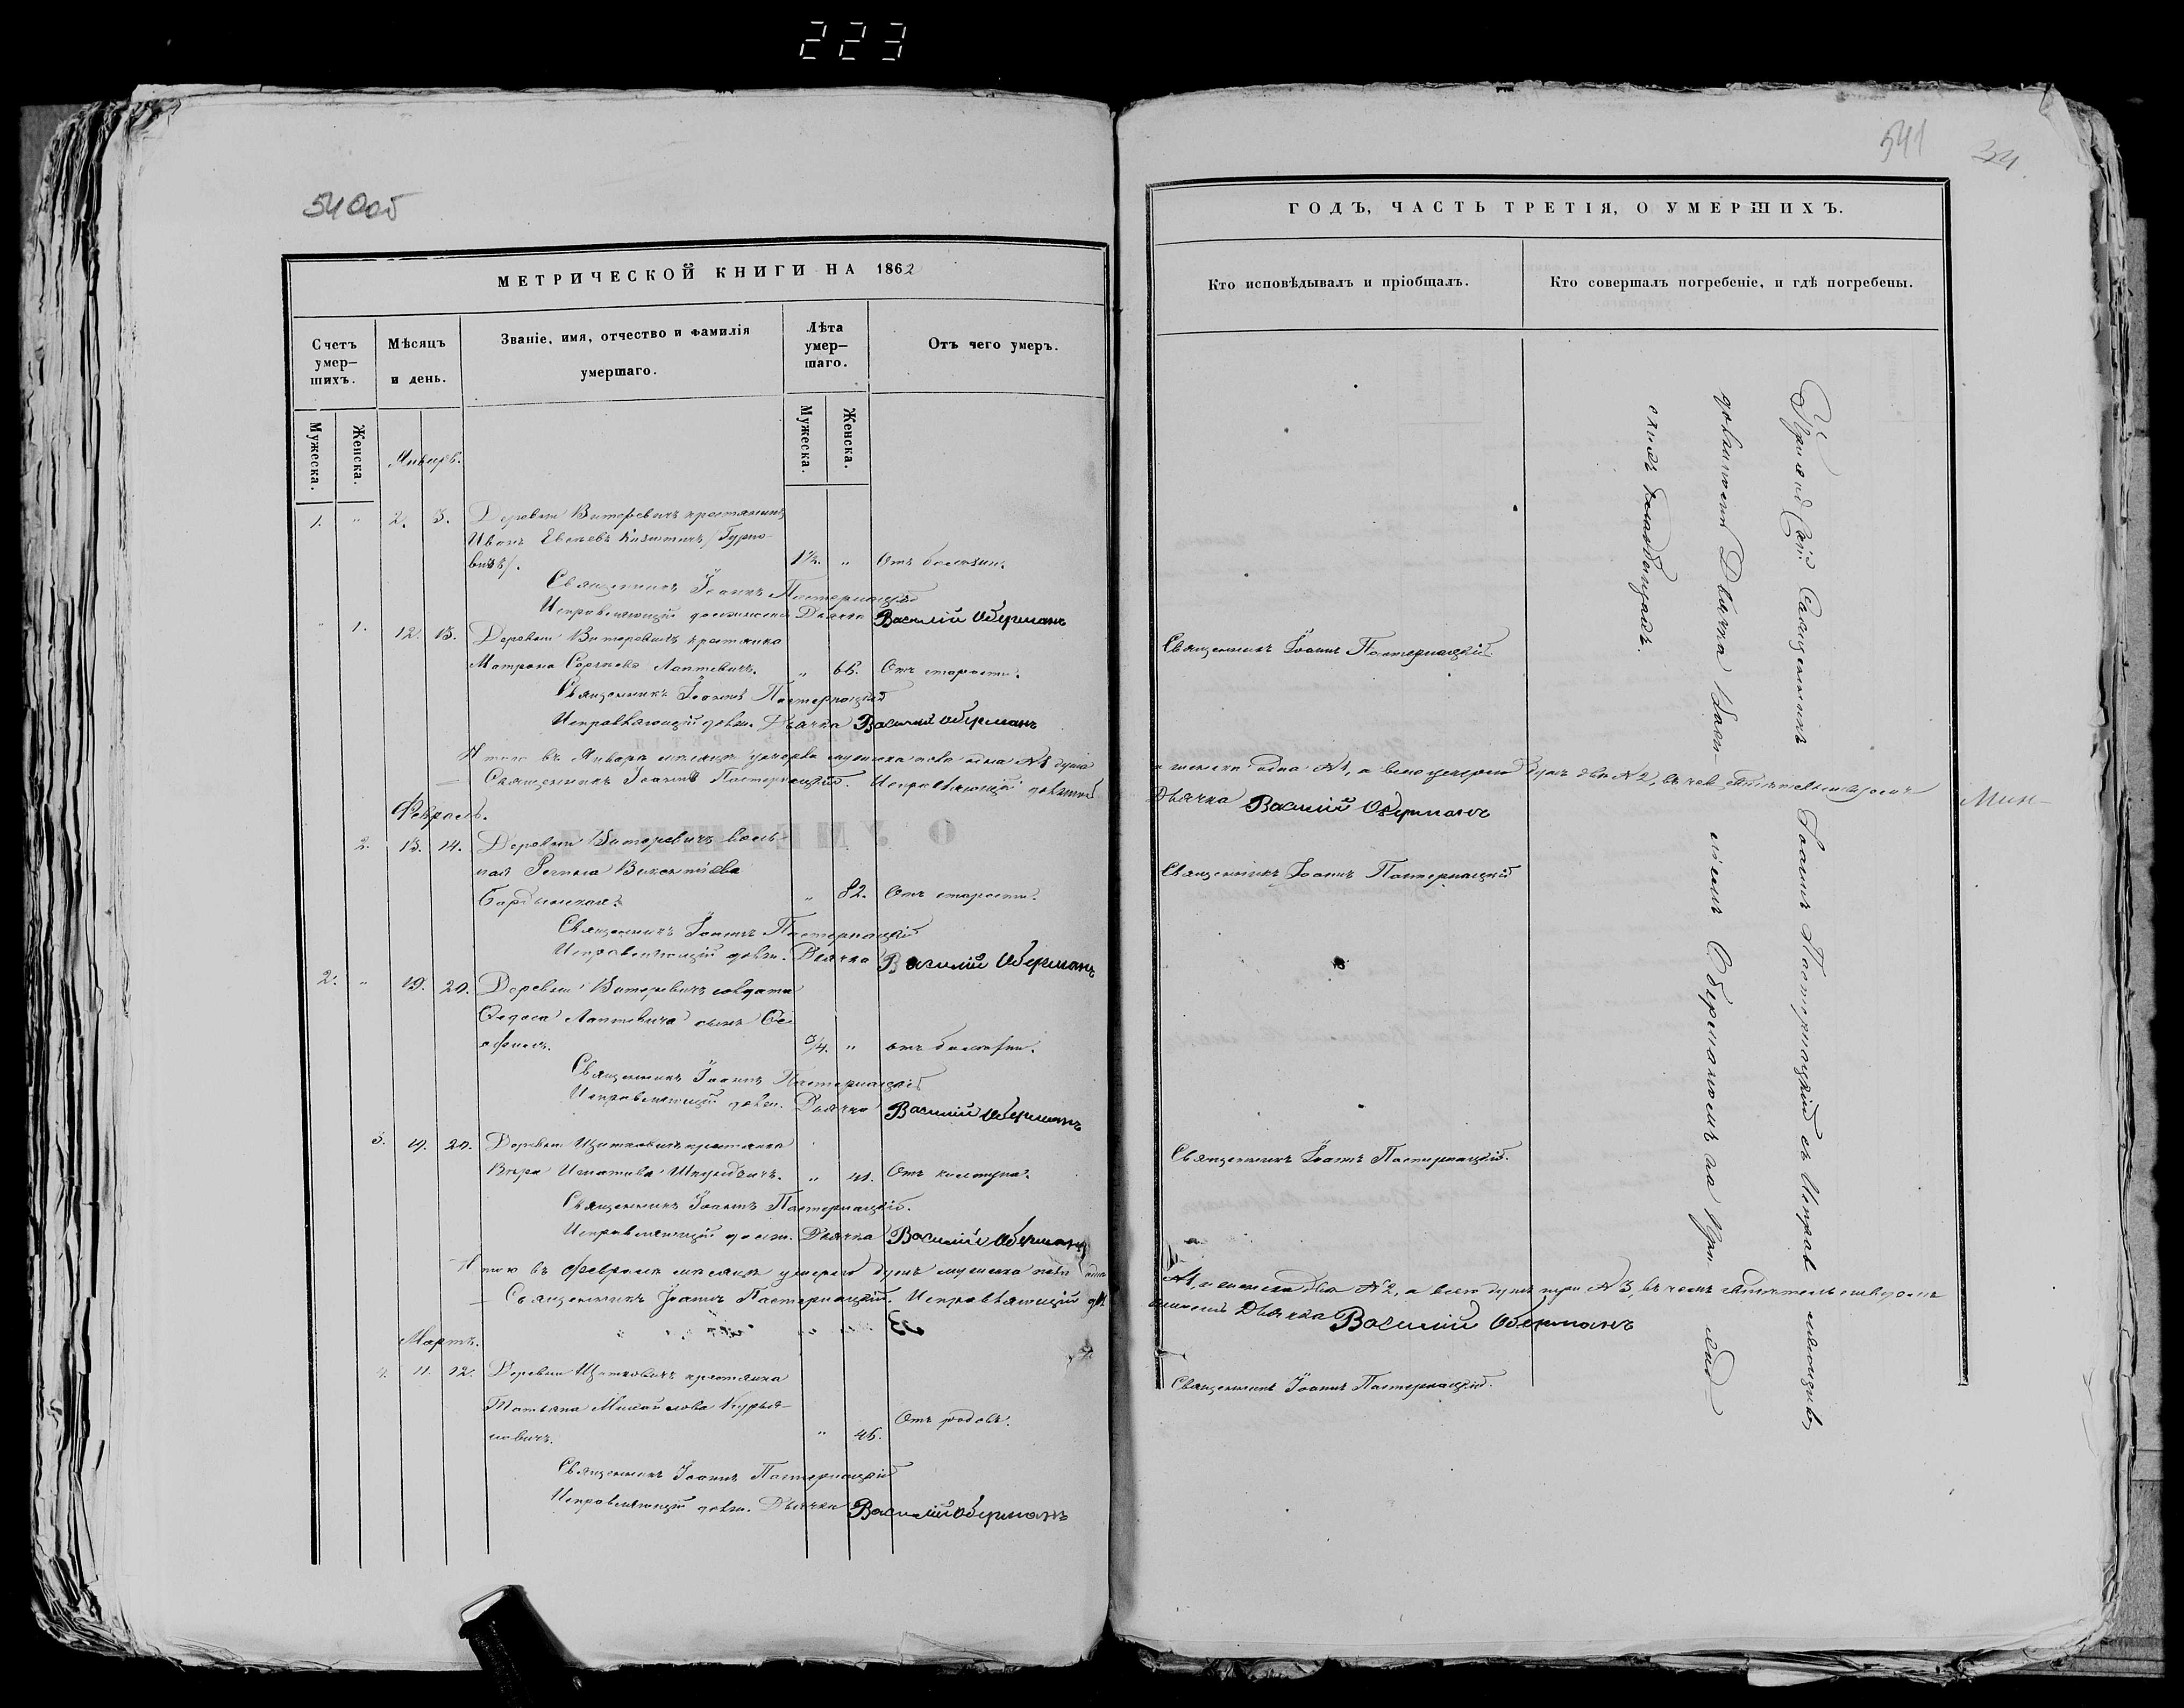 223
540об
МЕТРИЧЕСКОЙ КНИГИ НА 1862
Счетъ умер-
шихъ.
Мѣсяцъ
и день.
Званіе, имя, отчество и фамилія
умершаго.
Лѣта
умер-
шаго.
Отъ чего умеръ.
Мужеска.
Женска.
Мужеска.
Женска.
Январь.
1. " 2. 3. Деревни Витеревичъ крестьянинъ
Иванъ
1½. " Отъ болѣзни.
Священникъ Іоаннъ Пастернацкій
Исправляющій должность Дьячка Василій Оберманъ
" 1. 12. 13. Деревни Витеревичъ крестьянка
Матрона Сергѣева Лаптевичъ. " 66. Отъ старости.
Священникъ Іоаннъ Пастернацкій
Исправляющій долж. Дьячка Василій Оберманъ
Итого въ Январѣ мѣсяцѣ умерло мужеска пола одна №1 душа
Священникъ Іоаннъ Пастернацкій. Исправляющій должность
Февраль.
2. 13. 14. Деревни Витеревичъ воль-
ная Викентіева
" 82. Отъ старости.
Священникъ Іоаннъ Пастернацкій
Исправляющій долж. Дьячка Василій Оберманъ
2. " 19. 20. Деревни Витеревичъ солдата
Ѳедоса Лаптевича сынъ Ѳе-
офилъ. ¾. " отъ болѣзни.
Священникъ Іоаннъ Пастернацкій
Исправляющій долж. Дьячка Василій Оберманъ
3. 19. 20. Деревни Щитковичъ крестьянка
Вѣра Игнатова " 41. Отъ
Священникъ Іоаннъ Пастернацкій.
Исправляющій долж. Дьячка Василій Оберманъ
Итого въ Февралѣ мѣсяцѣ умерло душъ мужеска пола одна
Священникъ Іоаннъ Пастернацкій. Исправляющій дол
Мартъ.
4. 11. 12. Деревни Щитковичъ крестьянка
Татьяна Михайлова Курья-
новичъ. " 46. Отъ родовъ.
Священникъ Іоаннъ Пастернацкій
Исправляющій долж. Дьячка Василій Оберманъ
541
34
ГОДЪ, ЧАСТЬ ТРЕТІЯ, О УМЕРШИХЪ.
Кто исповѣдывалъ и пріобщалъ.
Кто совершалъ погребеніе, и гдѣ погребены.
Священникъ Іоаннъ Пастернацкій.
и женска одна №1, а всего умерло душъ два №2, въ чемъ свидѣтельствуемъ
Дьячка Василій Оберманъ
Мин-
Священникъ Іоаннъ Пастернацкій
Священникъ Іоаннъ Пастернацкій.
№1, и женска два №2, а всего душъ три №3, въ чемъ свидѣтельствуемъ
жность Дьячка Василій Оберманъ
Священникъ Іоаннъ Пастернацкій.
Священникъ Іоаннъ Пастернацкій съ Исправляющимъ
должность Дьячка Васи-ліемъ Оберманомъ на При-ход-
скихъ кладбищахъ.